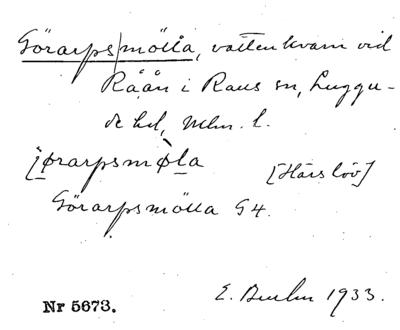 Görarps|mölla, vattenkvarn vid
Råån i Raus sn, Luggu-
de hd, Mlm. l.
jørarpsmø̀la
[Härslöv]
Görarpsmölla G4.
E. 1933.
Nr 5673.